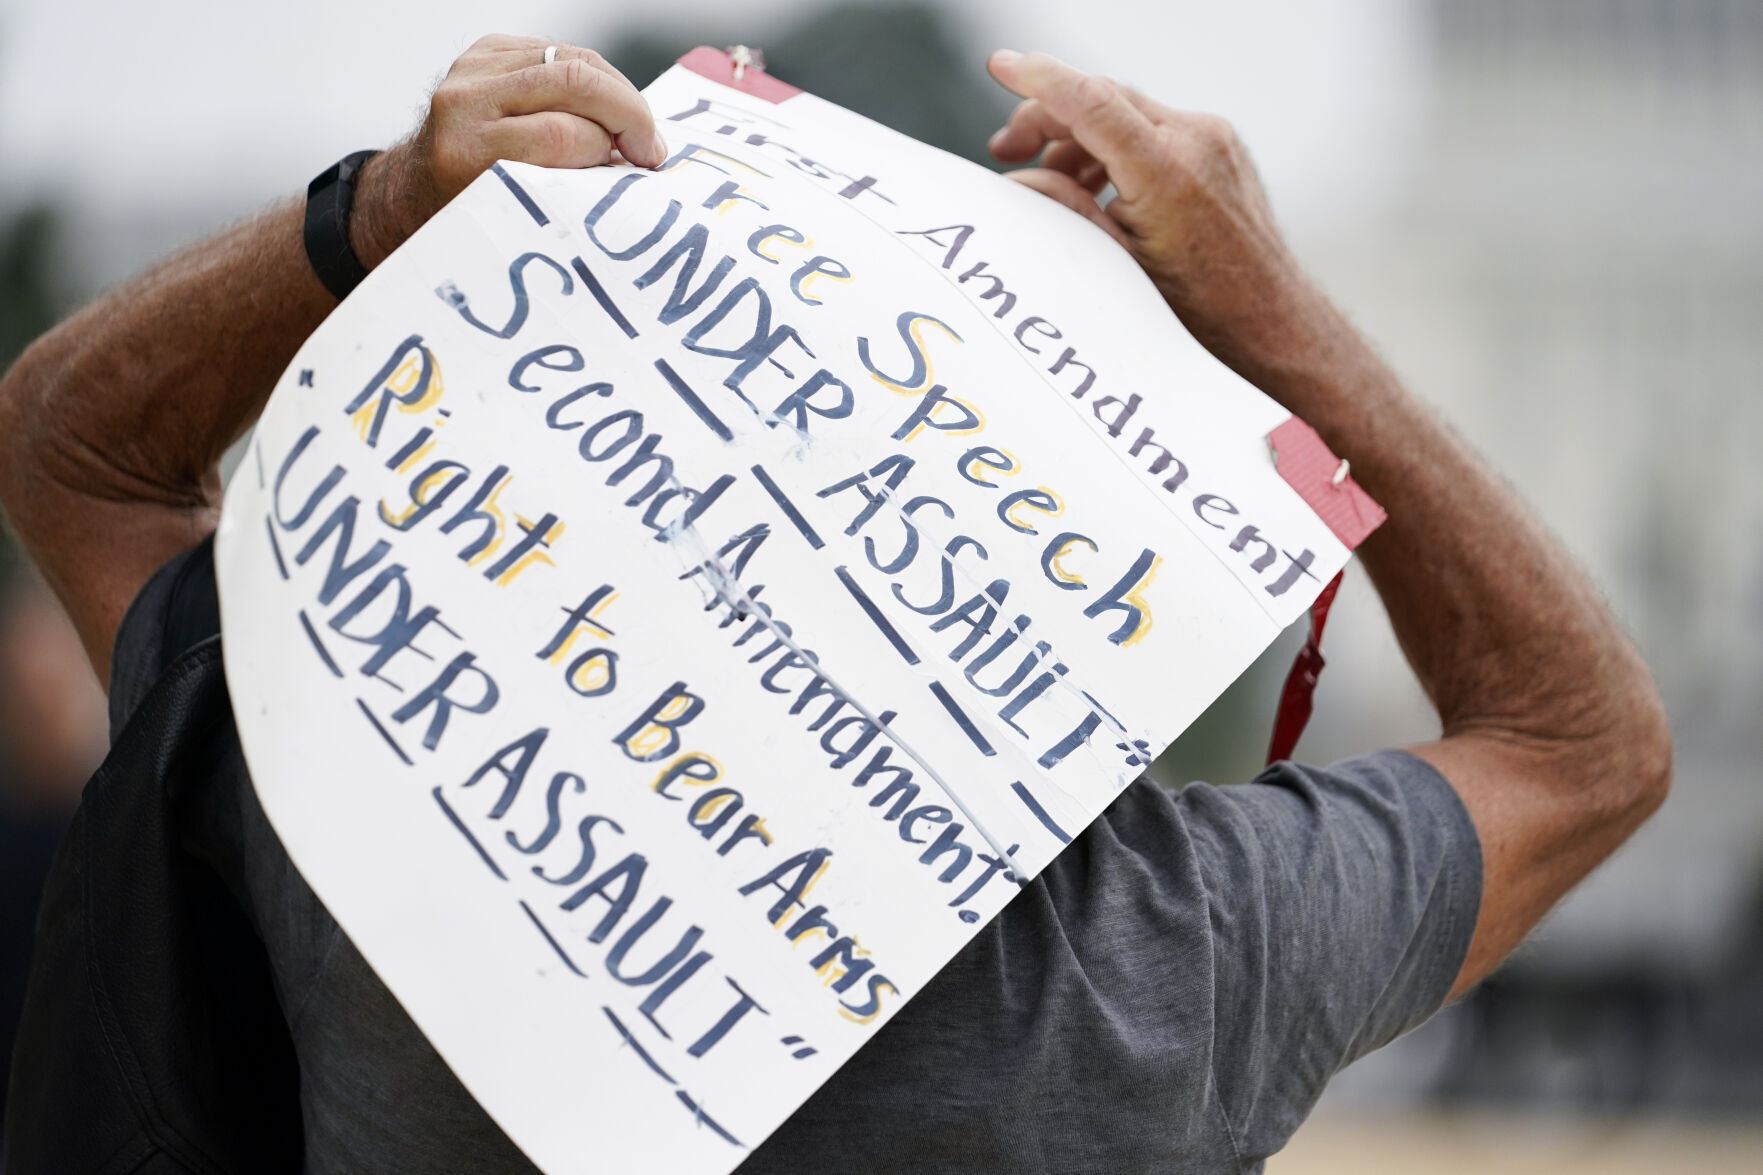 First Amendment
Free Speech
UNDER ASSAULT"
Second Amendment.
"Right to Bear Arms
UNDER ASSAULT"